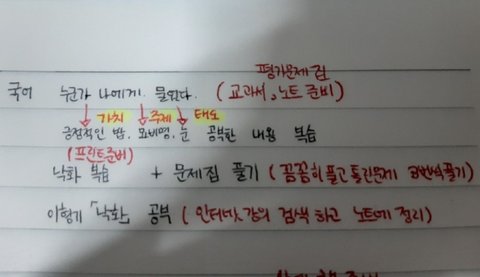 평가문제집
국어 누군가 나에게 물었다. (교과서, 노트 준비)
가치 주제 태도
긍정적인 밥, 묘비명, 눈 공부한 내용 복습
(프린트준비)
낙화 복습 + 문제집 풀기 (꼼꼼히 풀고 틀린문제 3번씩 풀기)
이형기 「낙화」 공부 (인터넷 강의 검색 하고 노트에 정리)